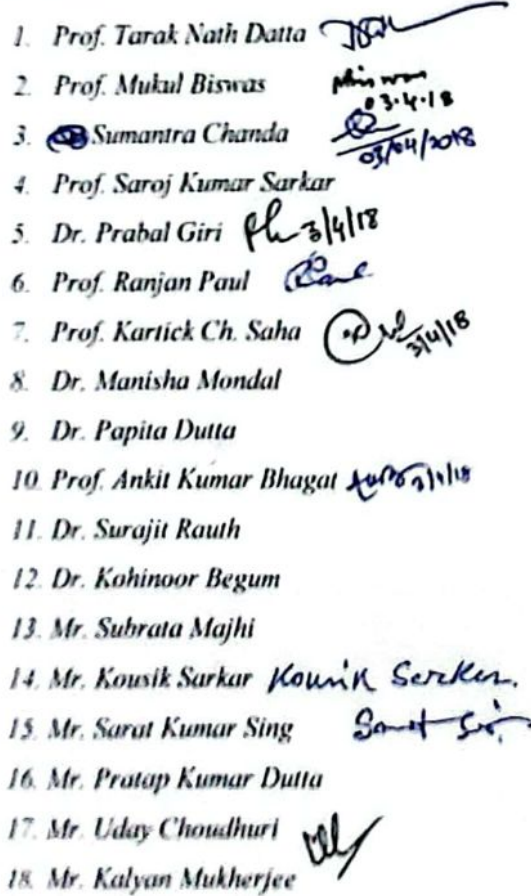 1. Prof. Tarak Nath Datta
2. Prof. Mukul Biswas
03.4.18
3. Sumantra Chanda
03/04/2018
4. Prof. Saroj Kumar Sarkar
5. Dr. Prabal Giri 3/4/18
6. Prof. Ranjan Paul
7. Prof. Kartick Ch. Saha 3/4/18
8. Dr. Manisha Mondal
9. Dr. Papita Dutta
10. Prof. Ankit Kumar Bhagat
11. Dr. Surajit Rauth
12. Dr. Kohinoor Begum
13. Mr. Subrata Majhi
14. Mr. Kousik Sarkar Kousik Sarkar.
15. Mr. Sarat Kumar Sing
16. Mr. Pratap Kumar Dutta
17. Mr. Uday Choudhuri
18. Mr. Kalyan Mukherjee